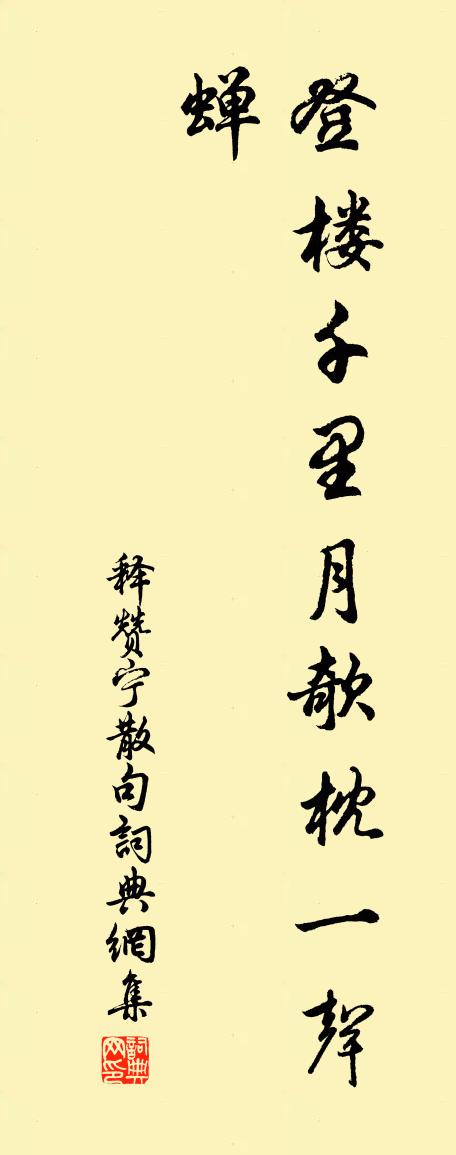 登楼千里月欹枕一聲
蝉
释赞宁散句詞典網集
詞典
网印